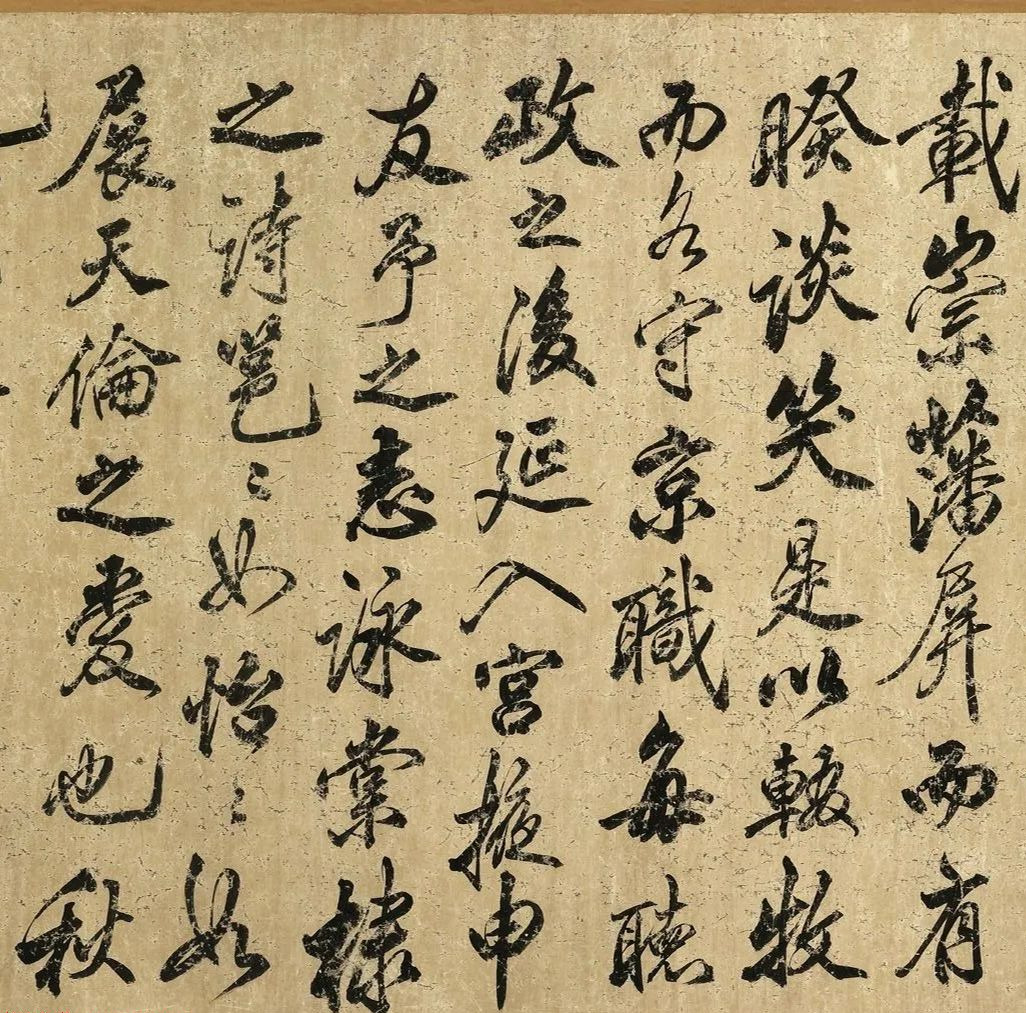 載崇藩屏而有
暌談笑是以輟牧
而各守京職每聽
政之後延入宮掖申
友于之志詠棠棣
之詩邕〻如怡〻如
展天倫之愛也秋